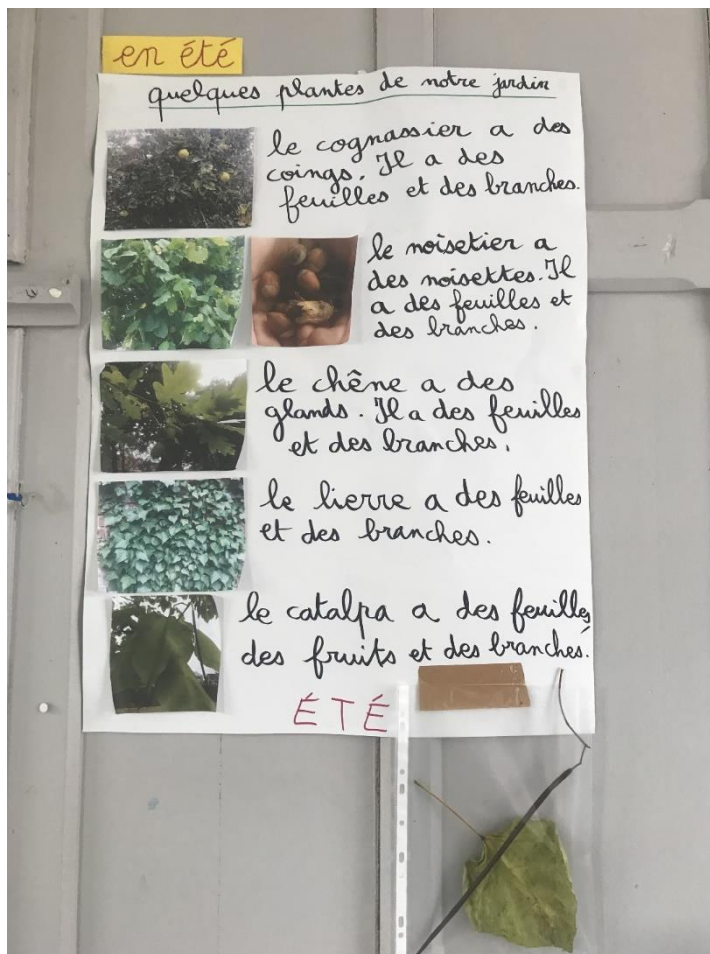 en été
quelques plantes de notre jardin
le cognassier a des
coings. Il a des
feuilles et des branches.
le noisetier a
des noisettes. Il
a des feuilles et
des branches.
le chêne a des
glands. Il a des feuilles
et des branches.
le lierre a des feuilles
et des branches.
le catalpa a des feuilles,
des fruits et des branches.
ÉTÉ